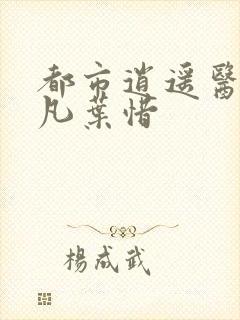 都市逍遥醫
凡葉惜
楊成武